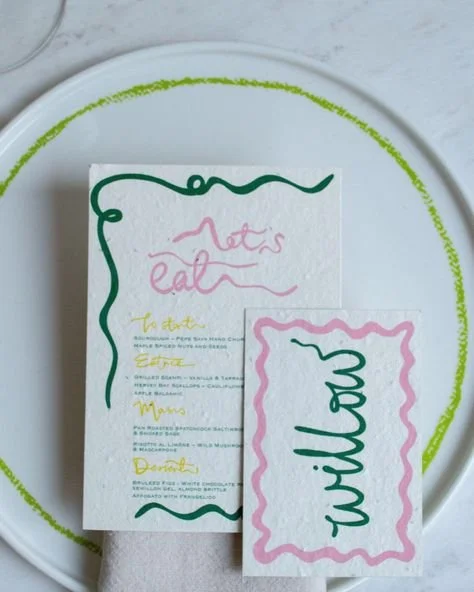 let's
eat
To start
Sourdough – Pepe Saya Hand Chur
Maple Spiced Nuts and Seeds
Entree
Grilled Scampi – Vanilla & Tarrag
Hervey Bay Scallops – Cauliflow
Apple Balsamic
Mains
Pan Roasted Spatchcock Saltimbo
& Smoked Sage
Risotto al Limone – Wild Mushroo
& Mascarpone
Desserts
Bruleed Figs – White Chocolate
Semillon Gel, Almond Brittle
Affogato with Frangelico
willow